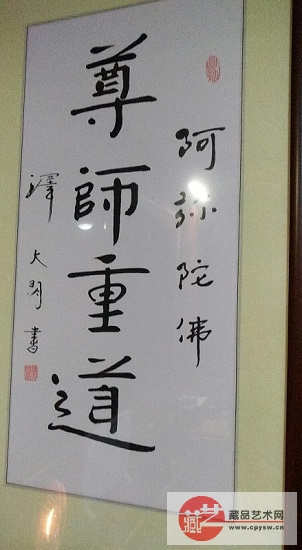 阿弥陀佛
尊師重道
大閑書
藏艺
藏品艺术网
www.cpysw.cn